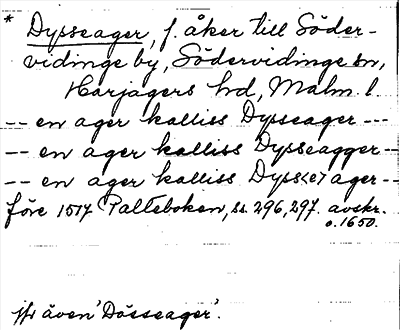 * Dysseager, f. åker till Söder-
vidinge by, Södervidinge sn,
Harjagers hd, Malm. l.
-- en ager kalliss Dysseager ---
-- en ager kalliss Dysseagger --
-- en ager kalliss Dyss(e) ager --
före 1517 Palteboken, ss. 296, 297. avskr.
o. 1650.
jfr även 'Dösseager'.